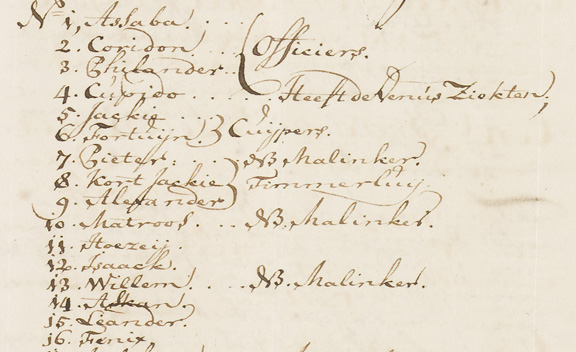 No 1, Assaba. . . .
2. Coridon . . . Officiers.
3. Philander . .
4. Cupido . . . . . Heeft de Venus Ziekten,
5. Jackey . . .
6. Fortuijn. } Cuijpers.
7. Pieter. . . . NB. Malinker.
8. Kort Jackie } Timmerluij.
9. Alexander
10. Matroos. . . NB. Malinker.
11. Hoezeij.
12. Isaack.
13. Willem . . . NB. Malinker.
14. Adkan.
15. Leander.
16. Fenix